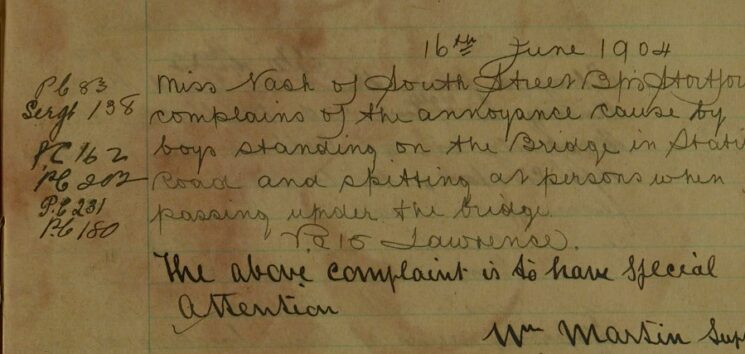 16th June 1904
Pb 83
Miss Nash of South Street Bp's Stortfor
Sergt 138
complains of the annoyance cause by
PC 162
boys standing on the Bridge in Stati
Pb 202
Road and spitting at persons when
P.C 231
passing under the bridge
Pb 180
P.C 15 Lawrence.
The above complaint is to have special
Attention
Wm Martin Sup